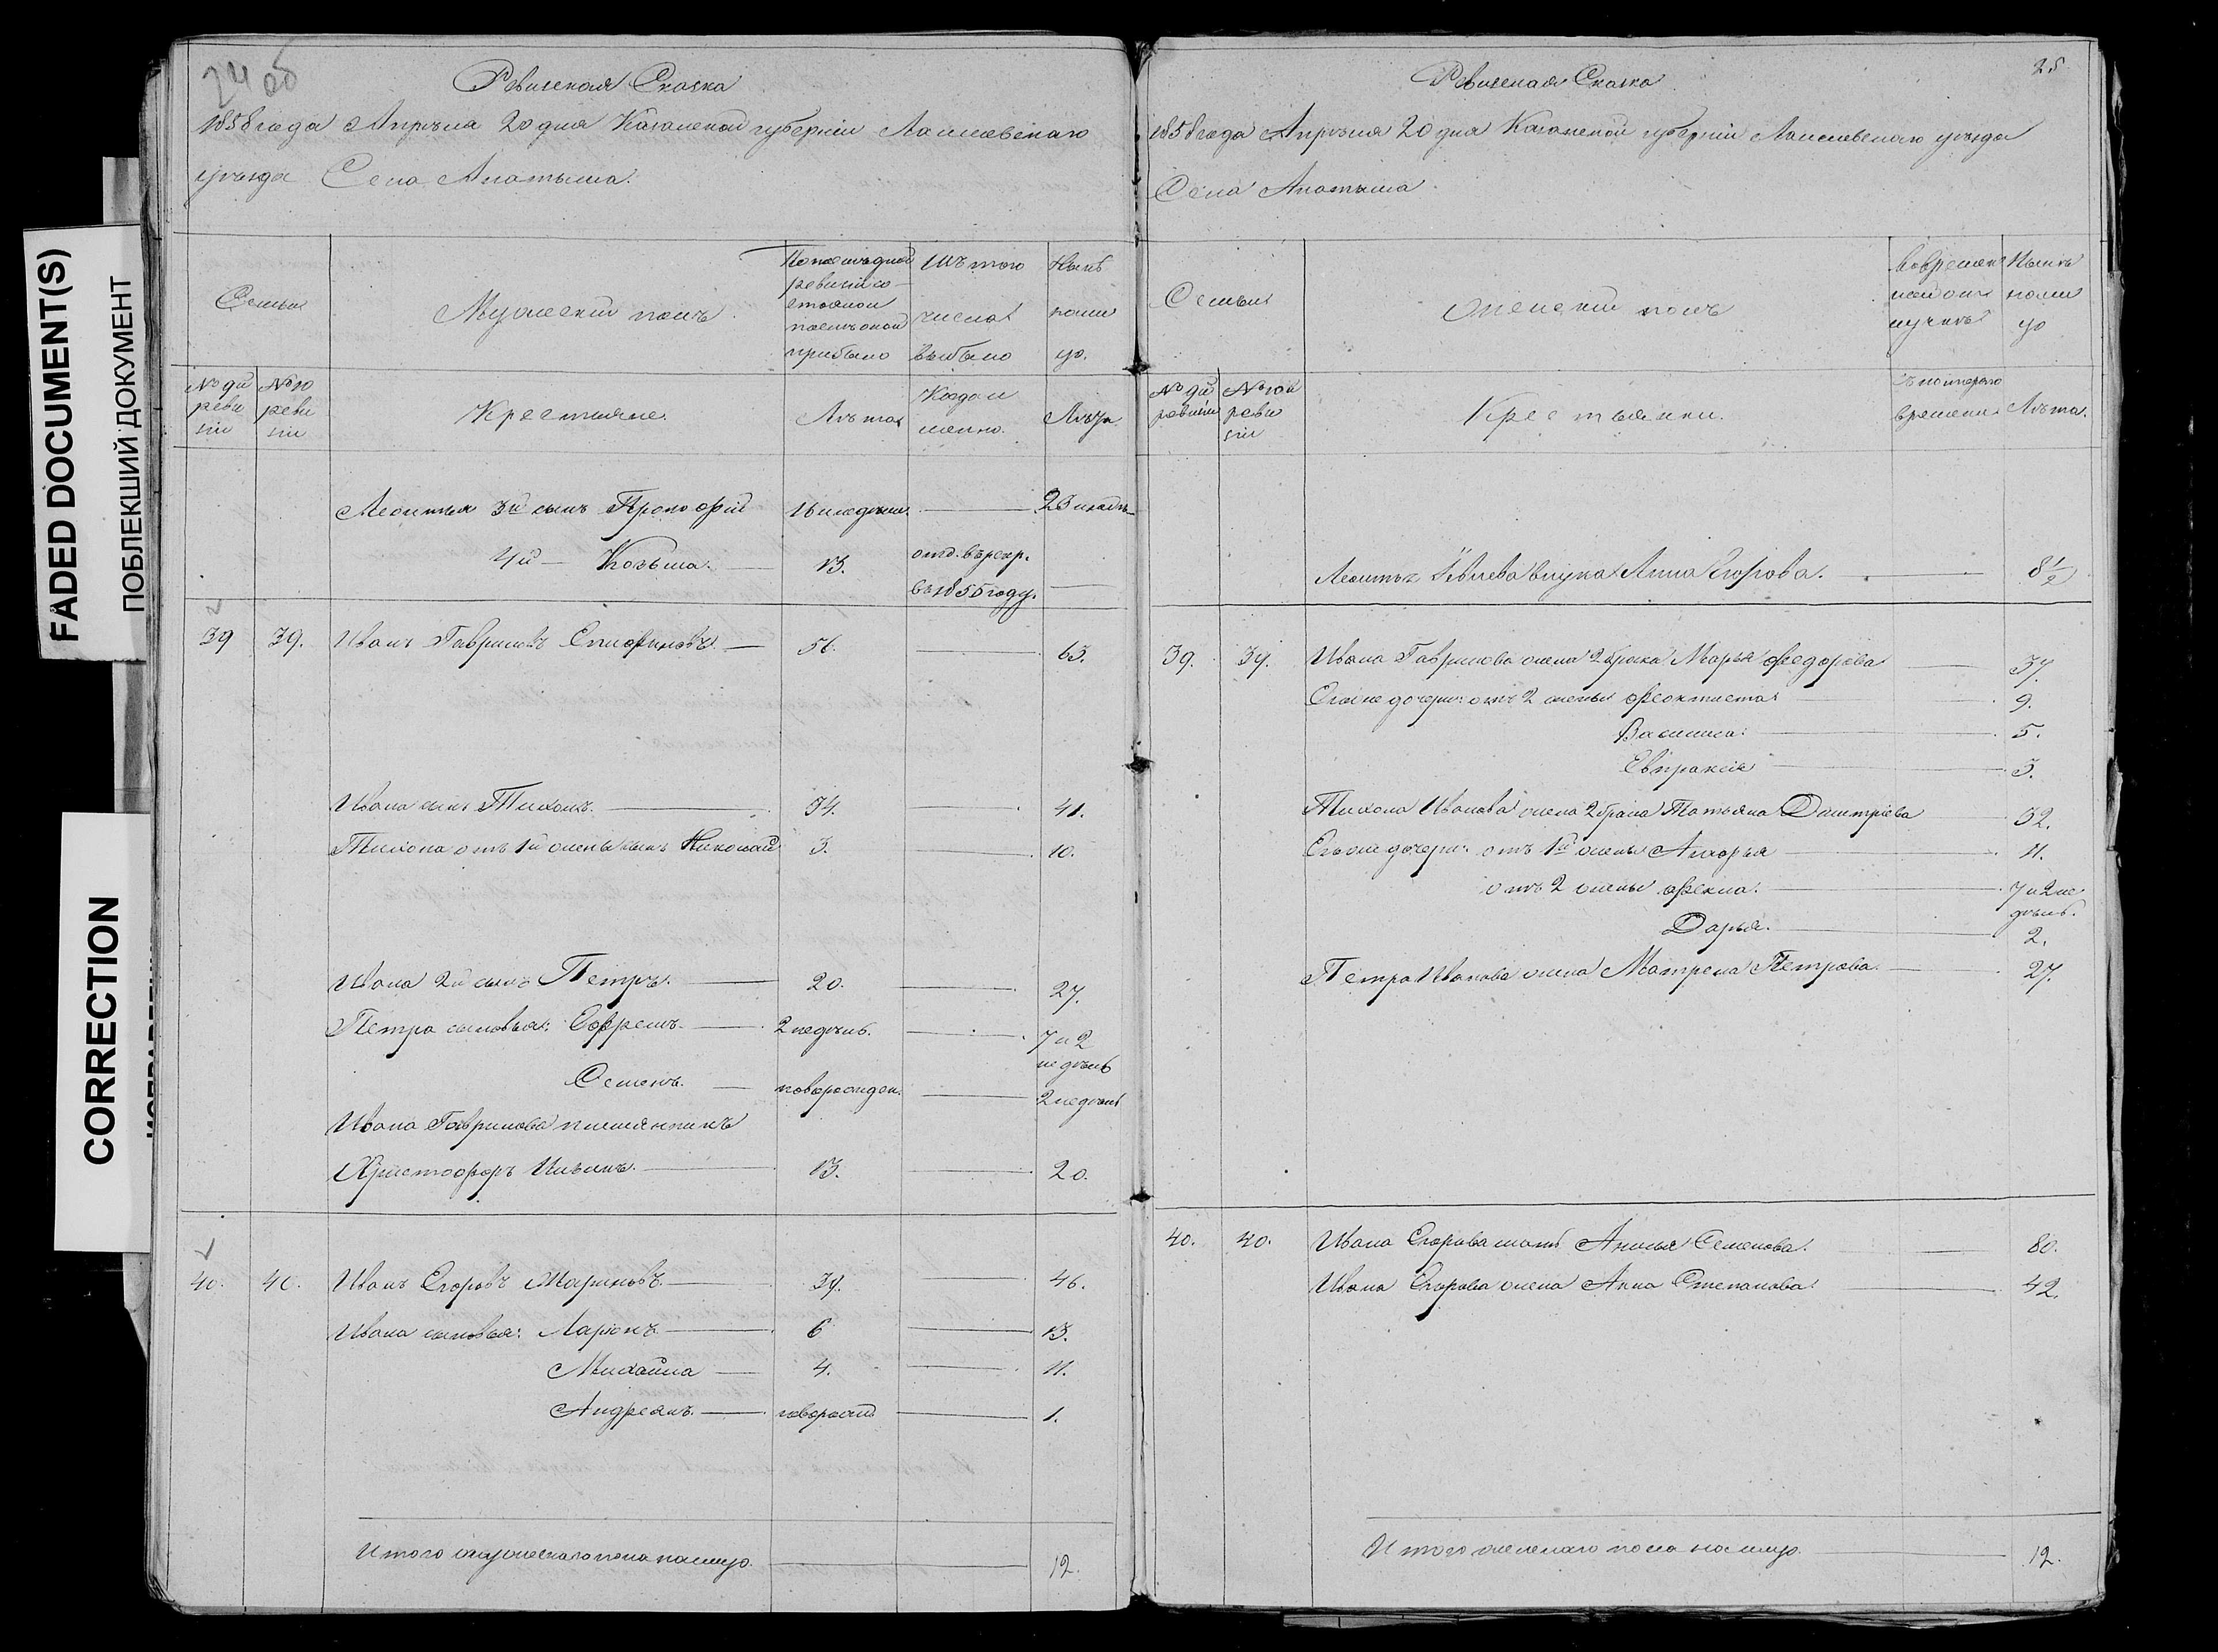 FADED DOCUMENT(S)
ПОБЛЕКШИЙ ДОКУМЕНТ
CORRECTION
24 об
Ревизская Сказка
1858 года Апрѣля 20 дня Казанской губерніи Лаишевскаго
уѣзда Села
Семьи
Мужескій полъ.
По послѣдней
ревизіи со-
стояло и
послѣ оной
прибыло
Изъ того
числа
выбыло
Нынѣ
на ли
цо.
№ 9й
реви
зіи
№ 10
реви
зіи
Крестьяне.
Лѣта
Когда и
менно.
Лѣта
Леонтья 3й сынъ Прокофій 16 недѣль.
4й — Козьма. 13. отд. въ рекр.
въ 1855 году.
39 39. Иванъ Гавриловъ 56. 63.
Ивана сынъ Тихонъ. 34. 41.
Тихона отъ 1й жены сынъ Николай 3. 10.
Ивана 2й сынъ Петръ. 20. 27.
Петра сыновья: Ефремъ. 2 недѣль. 7 и 2
недѣль
Семенъ. новорожден. 2 недѣль
Ивана Гаврилова племянникъ
Христофоръ Ильинъ. 13. 20.
40. 40. Иванъ Егоровъ Мариновъ 39. 46.
Ивана сыновья: Ларіонъ 6 13.
Михайла 4. 11.
Андреянъ. новорожд 1.
Итого мужескаго пола налицо. 12.
25
Ревизская Сказка
1858 года Апрѣля 20 дня Казанской губерніи Лаишевскаго уѣзда
Села
Семьи
Женскій полъ
Во времен
ной от
лучкѣ
Нынѣ
на ли
цо
№ 9й
ревизіи
№ 10й
реви
зіи
Крестьянки.
Съ котораго
времени
Лѣта.
Леонтья внука Анна Егорова. 8 1/2
39. 39. Ивана Гаврилова жена 2 брака Марья Федорова 37.
Его же дочери: отъ 2 жены Феоктиста 9.
Василиса: 5.
Евпраксія 3.
Тихона Иванова жена 2 брака Татьяна Дмитріева 32.
Его же дочери: отъ 1й жены 11.
отъ 2 жены Фекла. 7 и 2 не
дѣль.
Дарья. 2.
Петра Иванова жена Матрена Петрова. 27.
40. 40. Ивана Егорова мать Акилина Семенова. 80.
Ивана Егорова жена Анна Степанова. 42.
Итого женскаго пола налицо. 12.